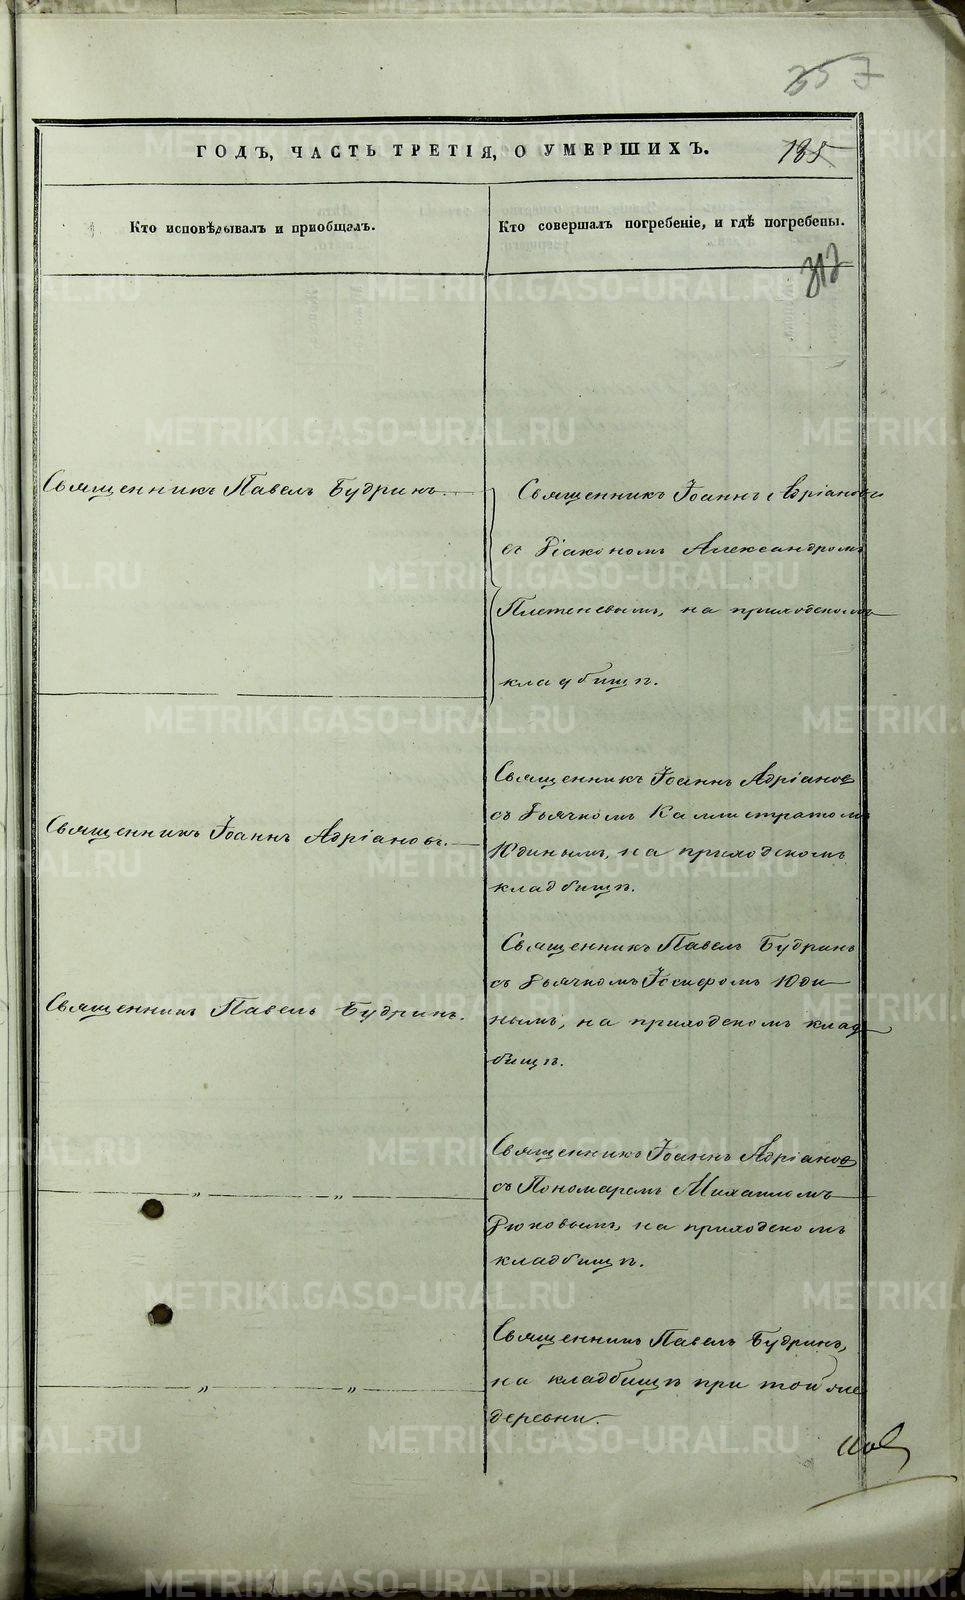 357
ГОДЪ, ЧАСТЬ ТРЕТІЯ, О УМЕРШИХЪ.
185
Кто исповѣдывалъ и пріобщалъ.
Кто совершалъ погребеніе, и гдѣ погребены.
312
Священникъ Павелъ Будринъ.
Священникъ Іоаннъ Адріановъ
съ Діакономъ Александромъ
Плетеневымъ, на приходскомъ
кладбищѣ.
Священникъ Іоаннъ Адріановъ.
Священникъ Іоаннъ Адріановъ
съ Дьячкомъ Каллистратомъ
Юдинымъ, на приходскомъ
кладбищѣ.
Священникъ Павелъ Будринъ.
Священникъ Павелъ Будринъ
съ Дьячкомъ Іосифомъ Юди
нымъ, на приходскомъ клад
бищѣ.
" "
Священникъ Іоаннъ Адріановъ
съ Пономаремъ Михаиломъ
на приходскомъ
кладбищѣ.
" "
Священникъ Павелъ Будринъ,
на кладбищѣ при той же
деревни.
METRIKI.GASO-URAL.RU